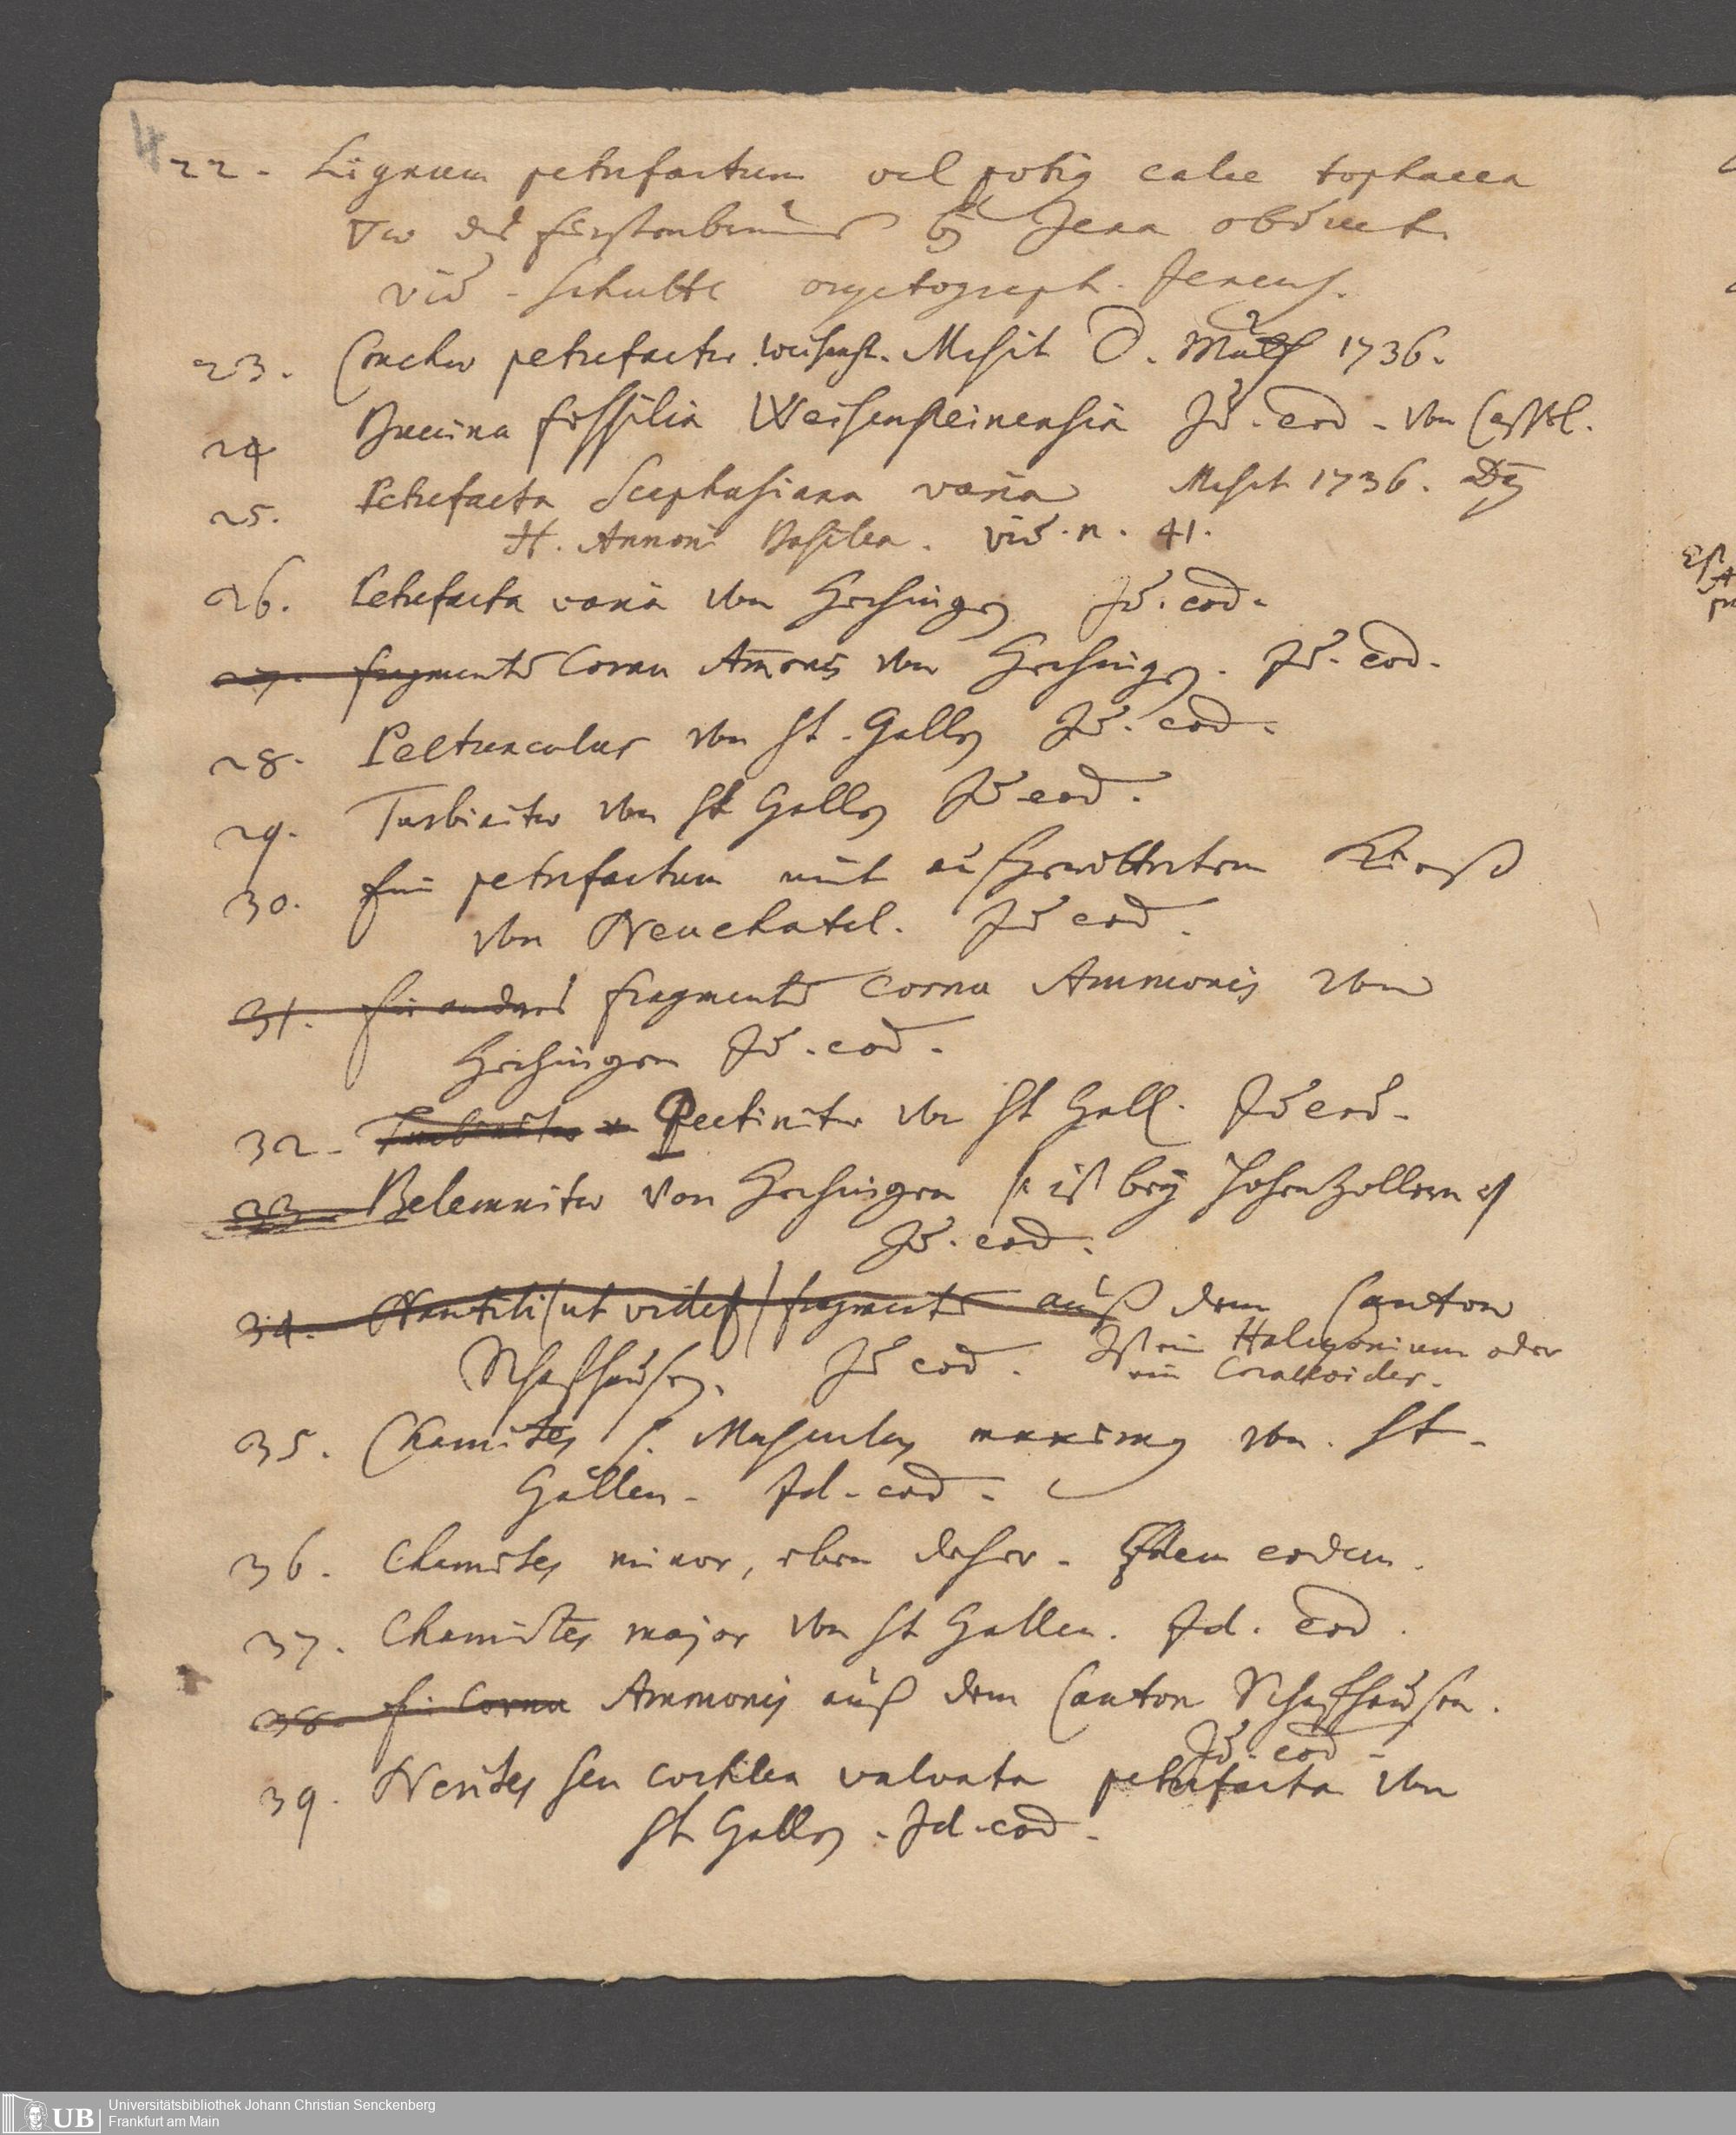 4
22. Lignum petrefactum vel potig calce tophacea
des fürstenbrunnens bey Jena obduct.
vid. Schutte oryctograph. Jenens.
23. Conchae petrefactae Weisenst. Misit D. 1736.
24 Buccina fossilia Weisensteinensia Id. eod. von Cassel.
25. Petrefacta Scaphusiana varia Misit 1736.
H. Annoni Basilea. vid. n. 41.
26. Petrefacta varia von Hechingen Id. eod.
27. fragmenta Cornu Amonis von Hechingen. Id. eod.
28. Pectunculus von St. Gallen Id. eod.
29. Turbinitae von St Gallen Id eod.
30. Ein petrefactum mit aufgewittertem Kieß
von Neuchatel. Id eod.
31. Ein anders fragment Cornu Ammonis von
Hechingen Id. eod.
32. Turbinitae Pectinitae von St Gall. Id eod.
33. Belemnitae von Hechingen ist bey Hohenzollern
Id. eod.
34. Nautili (ut videt) fragment auß dem Canton
Schafhausen. Id eod. Ist ein Halcyonium oder
ein Coralloides.
35. Chamites s. Musculus maximus von St.
Gallen. Id. eod.
36. Chamites minor, eben daher. Idem eodem.
37. Chamites major von St Gallen. Id. eod.
38. Ein Cornu Ammonis auß dem Canton Schafhausen.
Id. eod.
39. Nerites seu cochlea valvata petrefacta von
St Gallen. Id. eod.
UB Universitätsbibliothek Johann Christian Senckenberg
Frankfurt am Main